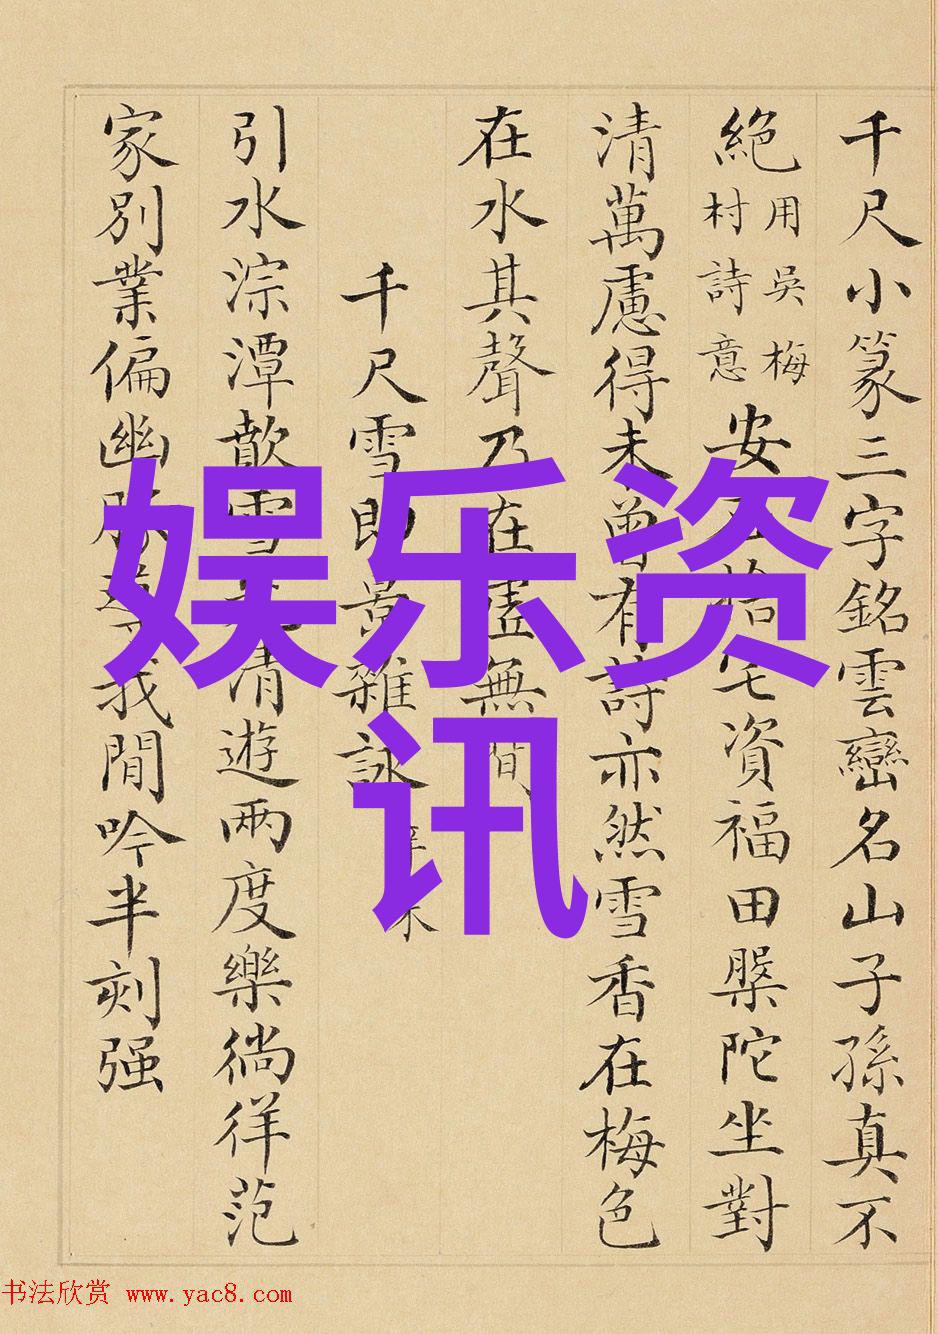 千尺小篆三字銘雲巒名山子孫真不
絕
用吳梅
村詩意
安
宅資福田槃陀坐對
清萬慮得未曾有詩亦然雪香在梅色
在水其聲乃在虛無間
千尺雪即景雜詠
引水淙潭歕雪
清遊兩度樂徜徉范
家別業偏幽
我閒吟半刻强
娱乐资
讯
书法欣赏 www.yac8.com